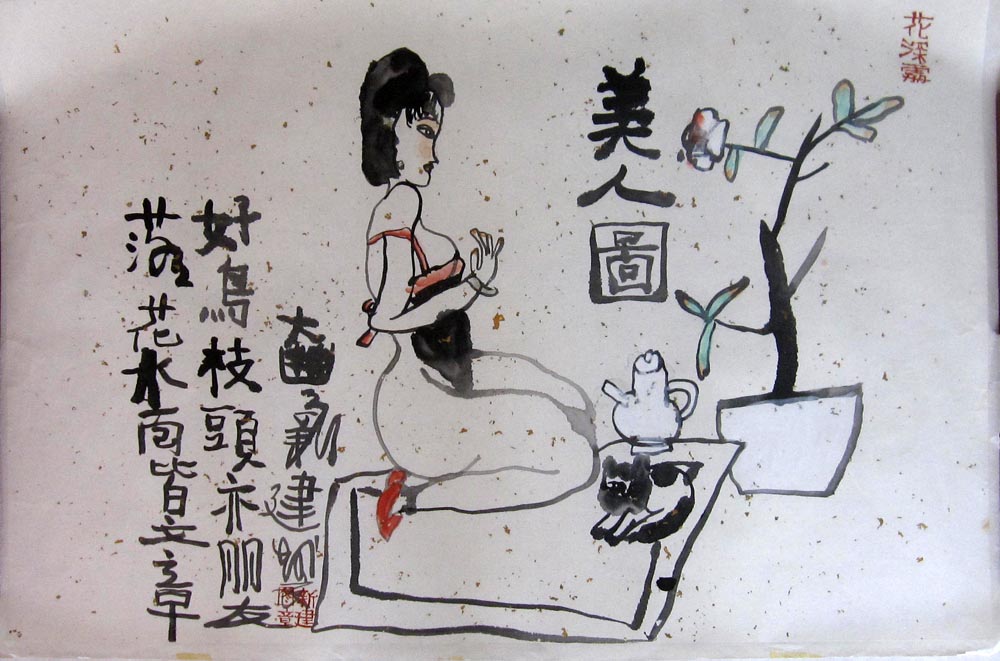 花深
美人圖
好鳥枝頭亦朋友
落花水面皆文章
新建
新建